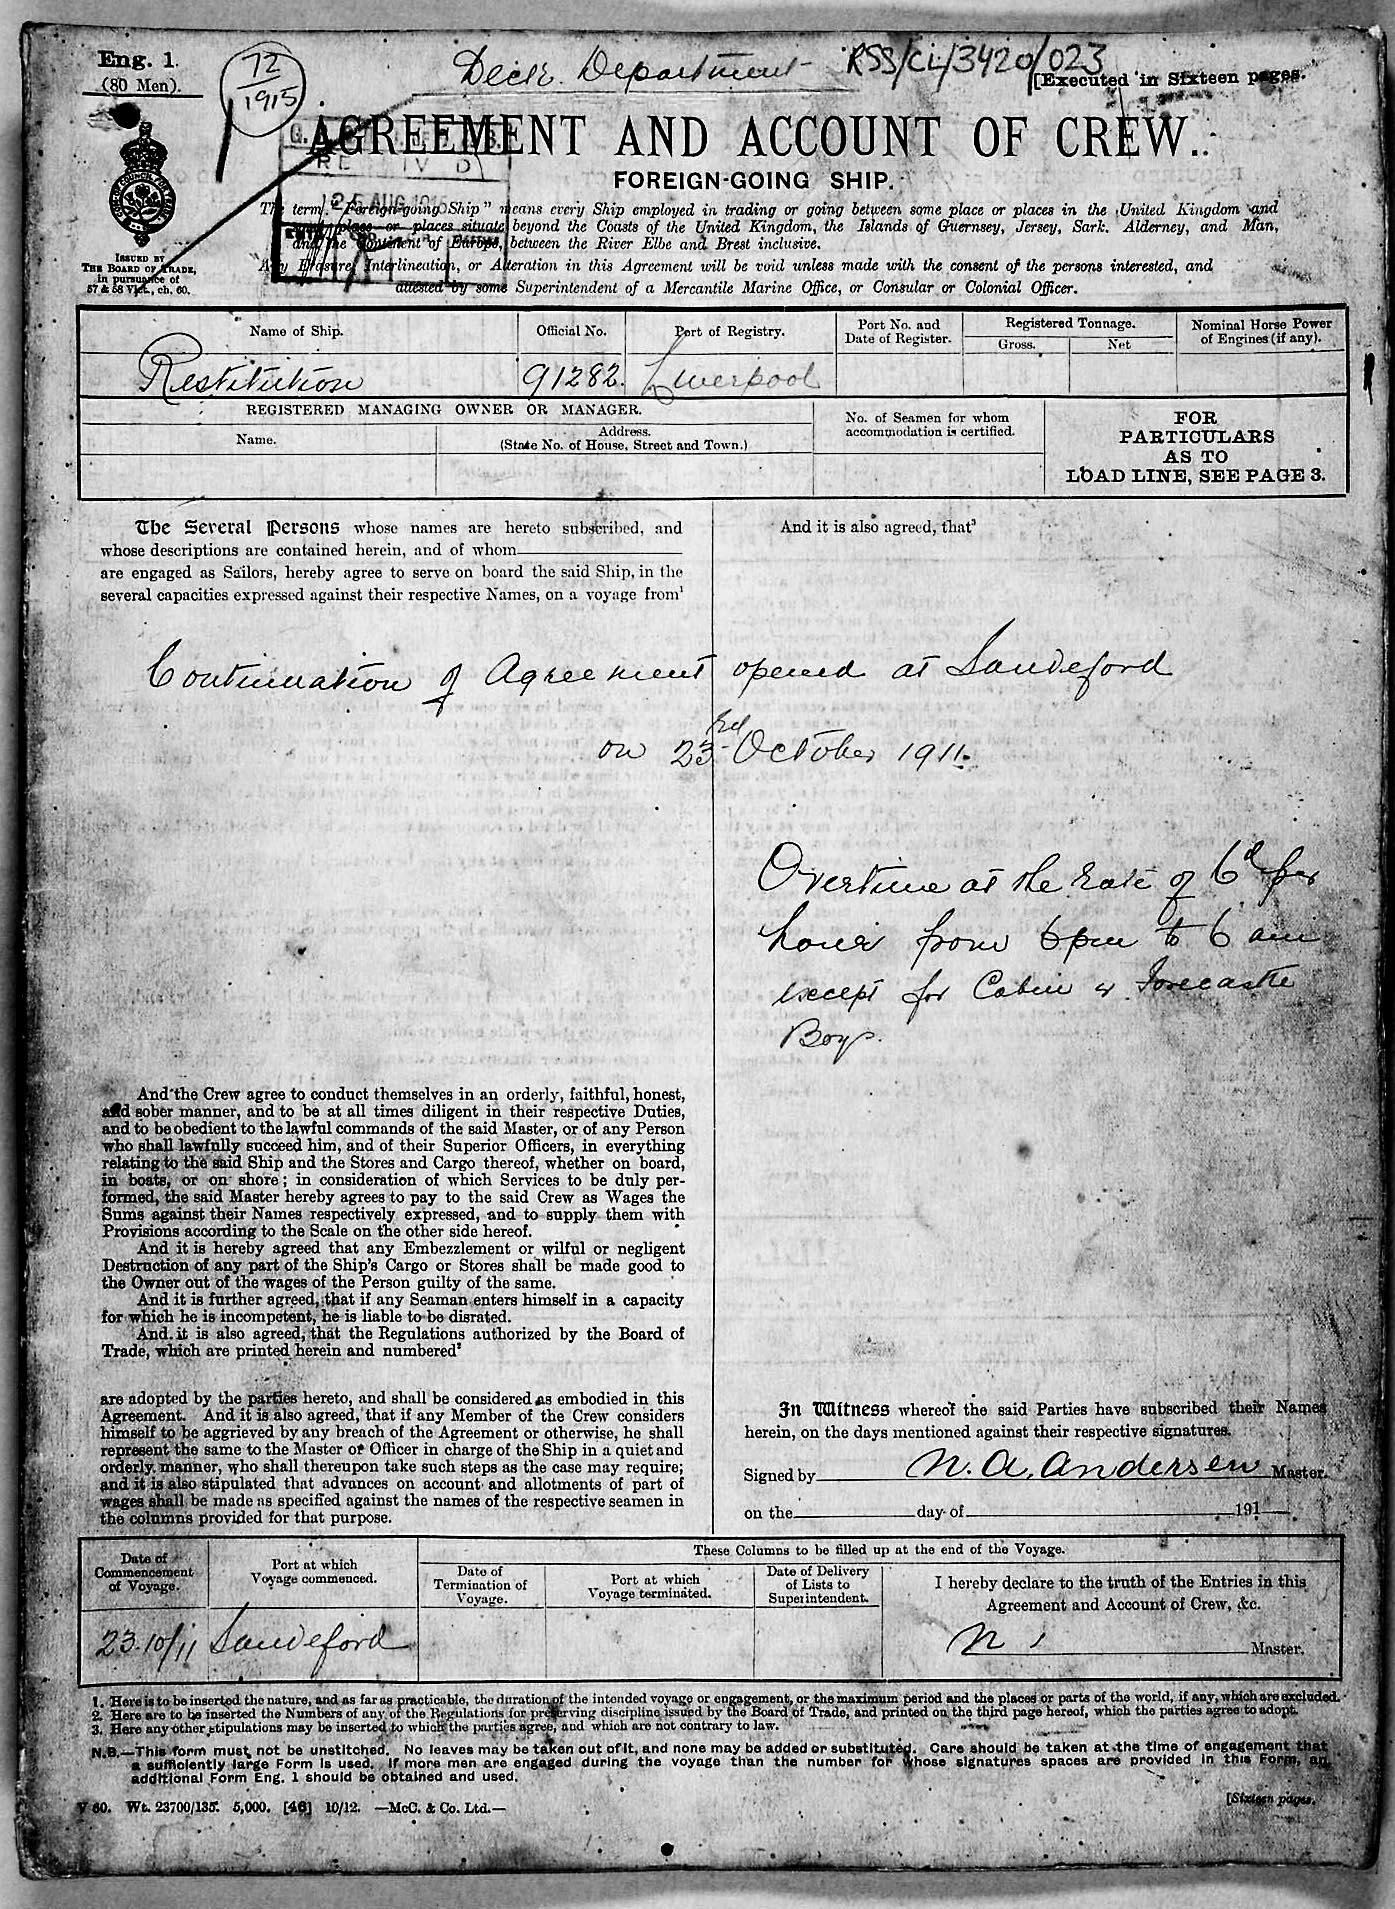 Eng. 1.
(80 Men).
72
1915
Deck Department
RSS/CL/3420/023
[Executed in Sixteen pages.
AGREEMENT AND ACCOUNT OF CREW.
FOREIGN-GOING SHIP.
25 AUG
The term "Foreign-going Ship" means every Ship employed in trading or going between some place or places in the United Kingdom and
some place or places situate beyond the Coasts of the United Kingdom, the Islands of Guernsey, Jersey, Sark, Alderney, and Man,
and the Continent of Europe, between the River Elbe and Brest inclusive.
Any Erasure, Interlineation, or Alteration in this Agreement will be void unless made with the consent of the persons interested, and
attested by some Superintendent of a Mercantile Marine Office, or Consular or Colonial Officer.
ISSUED BY
THE BOARD OF TRADE,
in pursuance of
57 & 58 Vict., ch. 60.
Name of Ship.
Official No.
Port of Registry.
Port No. and
Date of Register.
Registered Tonnage.
Gross.
Net
Nominal Horse Power
of Engines (if any).
Restitution
91282.
Liverpool
REGISTERED MANAGING OWNER OR MANAGER.
Name.
Address.
(State No. of House, Street and Town.)
No. of Seamen for whom
accommodation is certified.
FOR
PARTICULARS
AS TO
LOAD LINE, SEE PAGE 3.
The Several Persons whose names are hereto subscribed, and
whose descriptions are contained herein, and of whom
are engaged as Sailors, hereby agree to serve on board the said Ship, in the
several capacities expressed against their respective Names, on a voyage from¹
And it is also agreed, that³
Continuation of Agreement opened at Sandefjord
on 23rd October 1911.
Overtime at the rate of 6d per
hour from 6pm to 6 am
except for Cabin & Forecastle
Boys.
And the Crew agree to conduct themselves in an orderly, faithful, honest,
and sober manner, and to be at all times diligent in their respective Duties,
and to be obedient to the lawful commands of the said Master, or of any Person
who shall lawfully succeed him, and of their Superior Officers, in everything
relating to the said Ship and the Stores and Cargo thereof, whether on board,
in boats, or on shore; in consideration of which Services to be duly per-
formed, the said Master hereby agrees to pay to the said Crew as Wages the
Sums against their Names respectively expressed, and to supply them with
Provisions according to the Scale on the other side hereof.
And it is hereby agreed that any Embezzlement or wilful or negligent
Destruction of any part of the Ship's Cargo or Stores shall be made good to
the Owner out of the wages of the Person guilty of the same.
And it is further agreed, that if any Seaman enters himself in a capacity
for which he is incompetent, he is liable to be disrated.
And it is also agreed, that the Regulations authorized by the Board of
Trade, which are printed herein and numbered²
are adopted by the parties hereto, and shall be considered as embodied in this
Agreement. And it is also agreed, that if any Member of the Crew considers
himself to be aggrieved by any breach of the Agreement or otherwise, he shall
represent the same to the Master or Officer in charge of the Ship in a quiet and
orderly manner, who shall thereupon take such steps as the case may require;
and it is also stipulated that advances on account and allotments of part of
wages shall be made as specified against the names of the respective seamen in
the columns provided for that purpose.
In Witness whereof the said Parties have subscribed their Names
herein, on the days mentioned against their respective signatures.
Signed by N. A. Andersen Master.
on the day of 191
Date of
Commencement
of Voyage.
Port at which
Voyage commenced.
These Columns to be filled up at the end of the Voyage.
Date of
Termination of
Voyage.
Port at which
Voyage terminated.
Date of Delivery
of Lists to
Superintendent.
I hereby declare to the truth of the Entries in this
Agreement and Account of Crew, &c.
23.10/11 Sandefjord
N Master.
1. Here is to be inserted the nature, and as far as practicable, the duration of the intended voyage or engagement, or the maximum period and the places or parts of the world, if any, which are excluded.
2. Here are to be inserted the Numbers of any of the Regulations for preserving discipline issued by the Board of Trade, and printed on the third page hereof, which the parties agree to adopt.
3. Here any other stipulations may be inserted to which the parties agree, and which are not contrary to law.
N.B.—This form must not be unstitched. No leaves may be taken out of it, and none may be added or substituted. Care should be taken at the time of engagement that
a sufficiently large Form is used. If more men are engaged during the voyage than the number for whose signatures spaces are provided in this Form, an
additional Form Eng. 1 should be obtained and used.
V 60. Wt. 23700/135. 5,000. [46] 10/12. —McC. & Co. Ltd.—
[Sixteen pages.